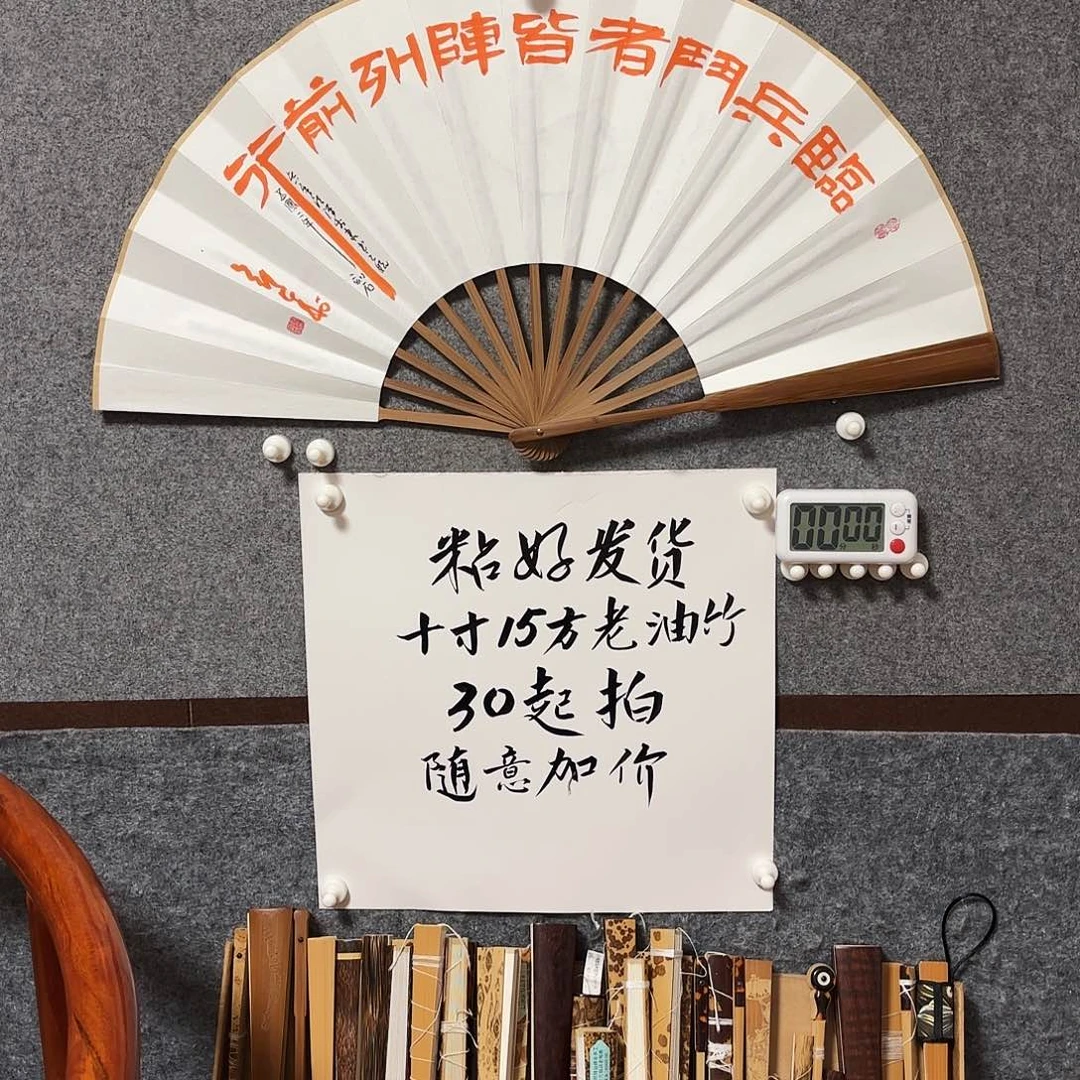 臨兵鬥者皆陣列前行
粘好发货
十寸15方老油竹
30起拍
随意加价
00 00